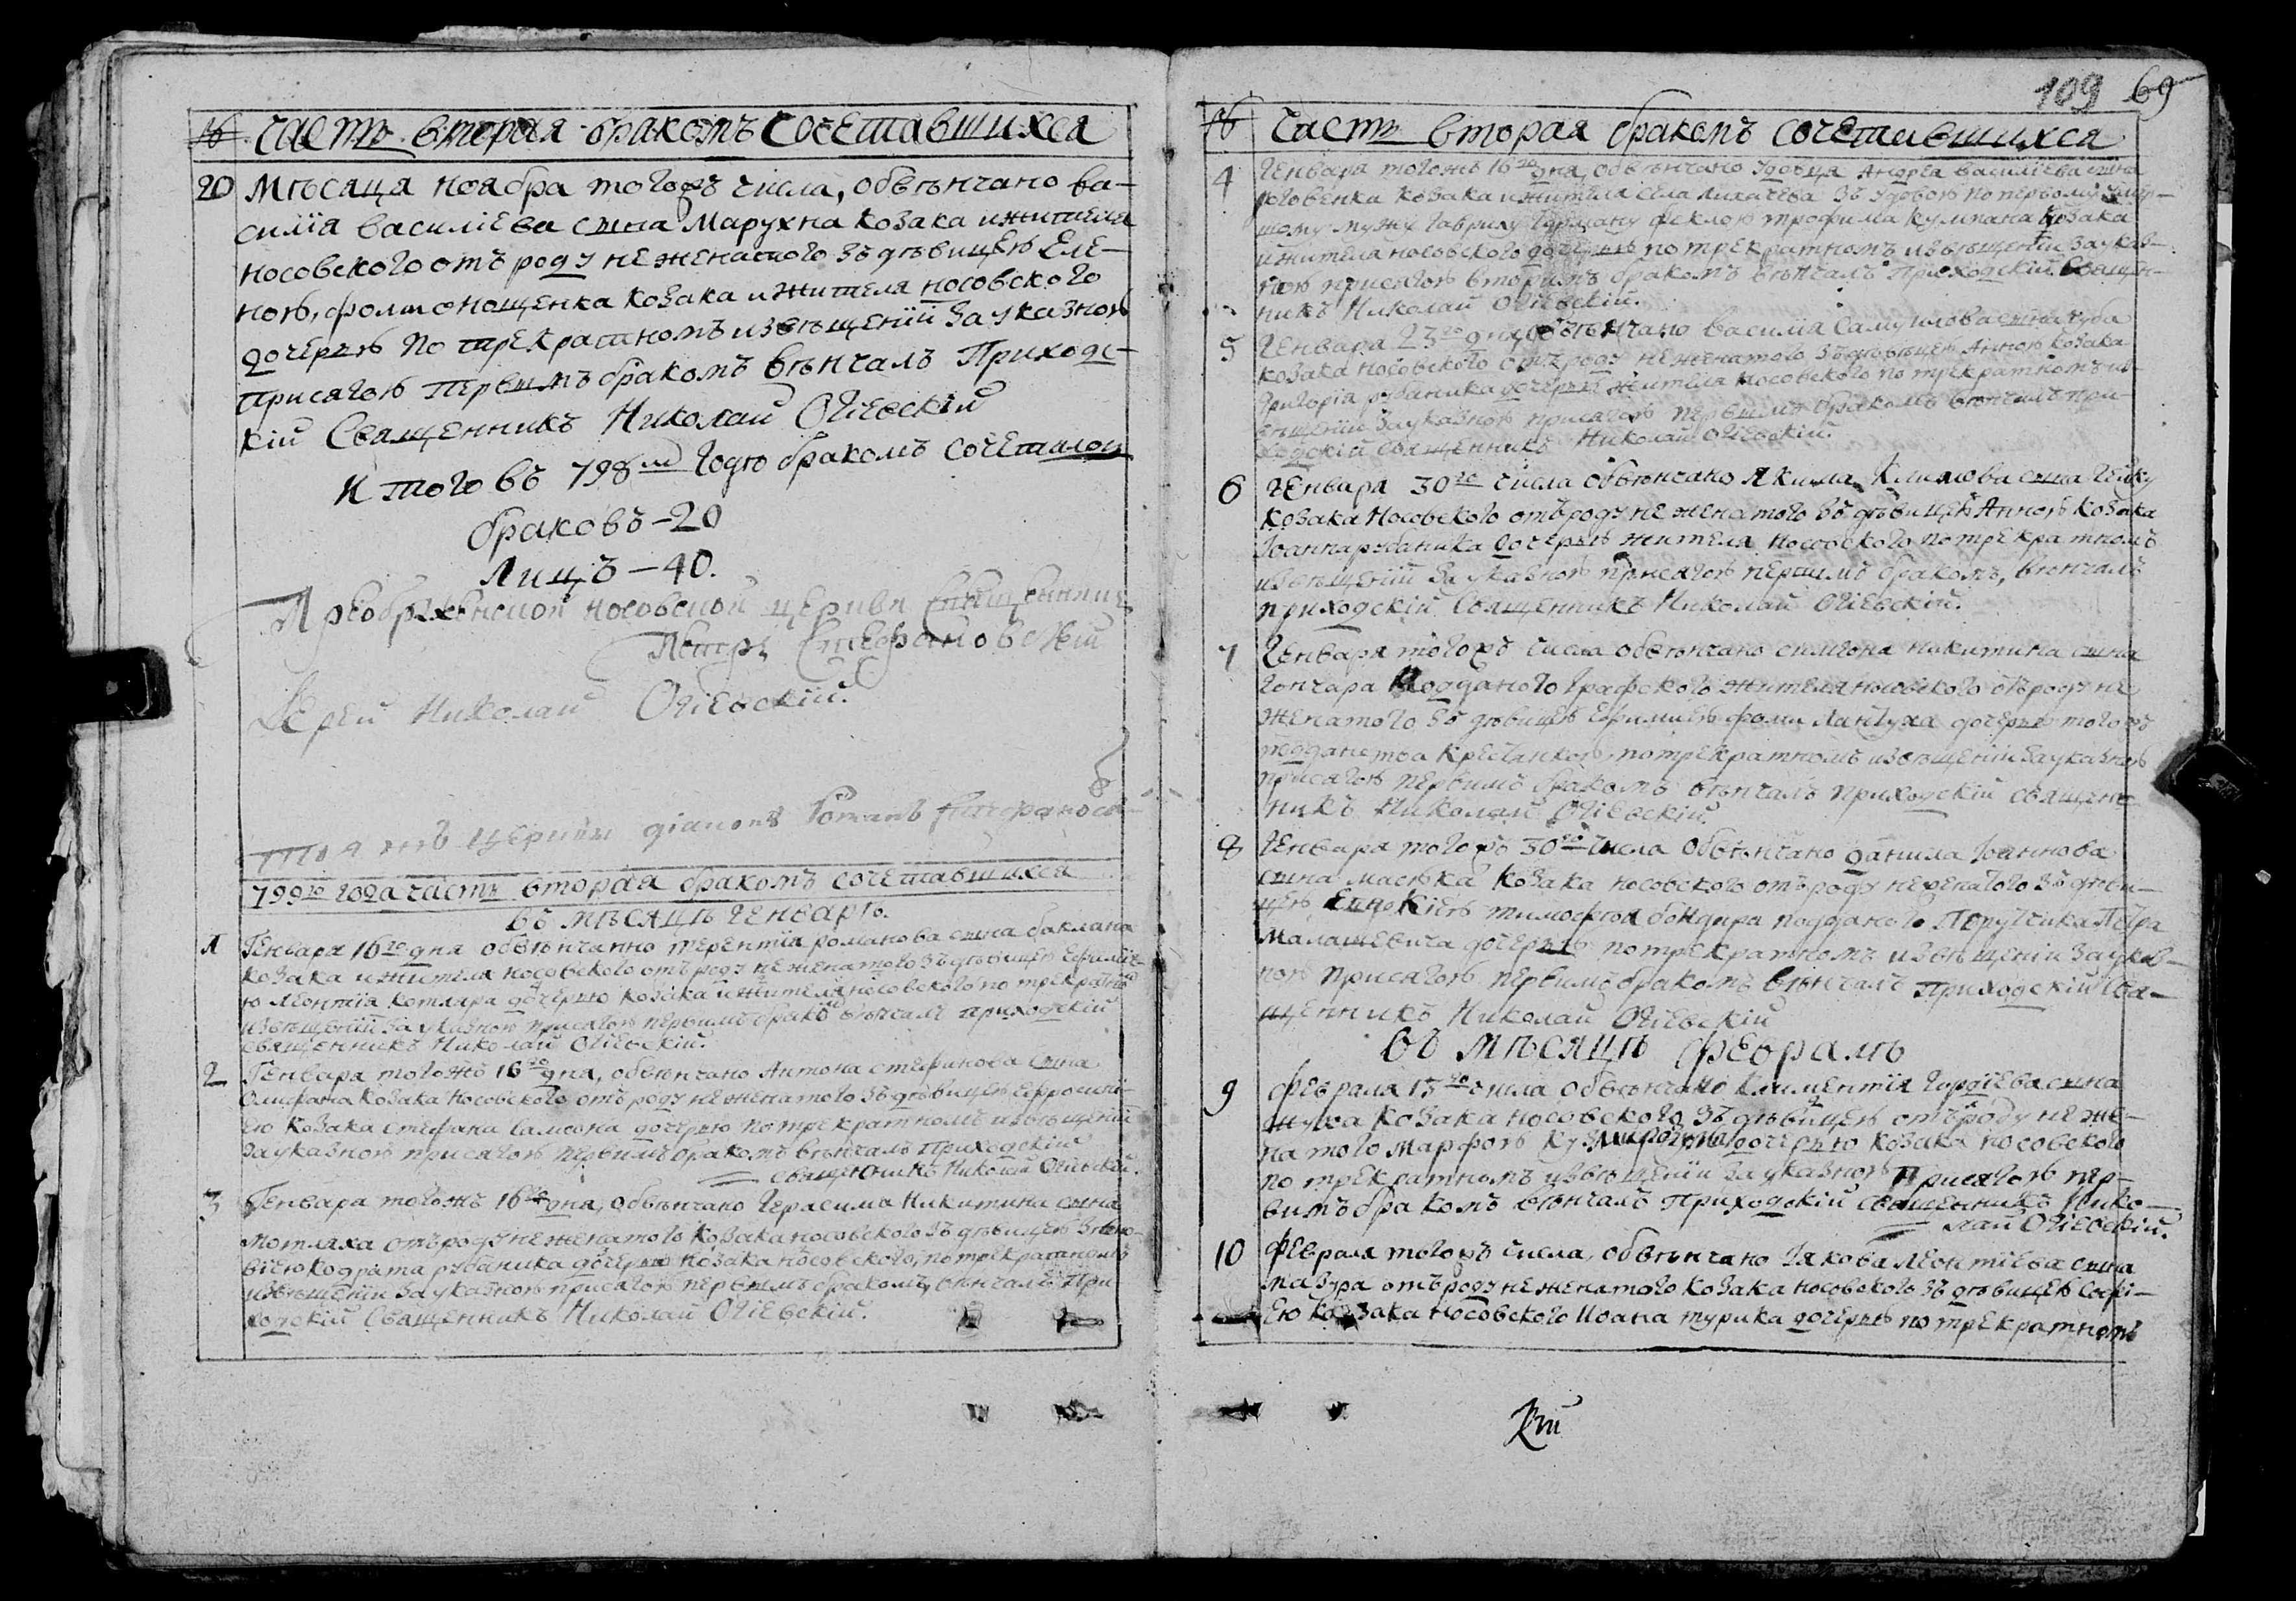 № Часть вторая бракомъ сочетавшихся
20 Мѣсяца ноября тогожъ числа, обвѣнчано ва-
силія василіева сына Марухна козака и жителя
носовского отъ роду не женатого зъ дѣвицею Еле-
ною, фоми онощенка козака и жителя носовского
дочерью по трекратномъ извѣщеніи за указною
присягою первымъ бракомъ вѣнчалъ Приходс-
кій Священникъ Николай Огіевскій
Итого въ 798м годѣ бракомъ сочеталось
браковъ-20
Лицъ-40.
Преображенской носовской церкви священникъ
Петръ Стефановскій
Іерей Николай Огіевскій.
Тоя жъ церкви діаконъ Романъ
799го года часть вторая бракомъ сочетавшихся
въ мѣсяцѣ генварѣ.
1 Генваря 16го дня обвѣнчанно терентія романова сына баклана
козака и жителя носовского отъ роду не женатого зъ дѣвицею Ефиміе-
ю леонтія котляра дочерью козака и жителя носовского по трекратно
извѣщеніи за указною присягою первимъ брако вѣнчалъ приходскій
священникъ Николай Огіевскій.
2 Генваря тогожъ 16го дня, обвѣнчано Антона стефанова сына
козака носовского отъ роду не женатого зъ дѣвицею Ефросині-
ею козака стефана самсона дочерью по трекратномъ извѣщеніи
за указною присягою первимъ бракомъ вѣнчалъ Приходскій
священникъ Николай Огіевскій.
3 Генваря тогожъ 16го дня, обвѣнчано Герасима Никитина сына
мотляха отъ роду не женатого козака носовского зъ дѣвицею
кодрата рубаника дочерью козака носовского, по трекратномъ
извѣщеніи за указною присягою первымъ бракомъ, вѣнчалъ При
ходскій Священникъ Николай Огіевскій.
109 69
№ Часть вторая бракомъ сочетавшихся
4 Генваря тогожъ 16го дня, обвѣнчано удовца Андрея василіева сына
роговенка козака и жителя села лихачева зъ удовою по первому умер-
шому мужу гаврилу феклою трофима кулпана козака
и жителя носовского дочерью по трекратномъ извѣщеніи за указ-
ною присягою вторимъ бракомъ вѣнчалъ Приходскій Священ-
никъ Николай Огіевскій.
5 Генваря 23го дня, обвѣнчано василія Самуилова сына
козака носовского отъ роду не женатого зъ дѣвицею Анною козака
григорія рубаника дочерью жителя носовского по трекратномъ из-
вѣщеніи за указною присягою первымъ бракомъ вѣнчалъ при-
ходскій священникъ Николай Огіевскій.
6 Генваря 30го числа обвѣнчано Якима Климова сына
козака носовского отъ роду не женатого зъ дѣвицею Анною козака
Іоанна рубаника дочерью жителя носовского по трекратномъ
извѣщеніи за указною присягою первимъ бракомъ, вѣнчалъ
приходскій Священникъ Николай Огіевскій.
7 Генваря тогожъ числа обвѣнчано симеона никитина сына
гончара подданого графского жителя носовского отъ роду не
женатого зъ дѣвицею Ефиміею фоми лантуха дочерью тогожъ
подданства крестянкою по трекратномъ извѣщеніи за указною
присягою первимъ бракомъ вѣнчалъ приходскій священ
никъ Николай Огіевскій.
8 Генваря тогожъ 30го числа обвѣнчано данила Іоаннова
сына масюка козака носовского отъ роду неженатого зъ дѣви-
цею тимофея бондара подданого Поручика Петра
Малашевича дочерью по трекратномъ извѣщеніи за указ-
ною присягою первимъ бракомъ вѣнчалъ Приходскій свя-
щенникъ Николай Огіевскій
Въ мѣсяцѣ февралѣ
9 Февраля 13го числа обвѣнчано климентія гордіева сына
козака носовского зъ дѣвицею отъ роду не же-
натого Марфою дочерью козака носовского
по трекратномъ извѣщеніи за указною Присягою пер-
вимъ бракомъ вѣнчалъ Приходскій священникъ Нико-
лай Огіевскій.
10 Февраля тогожъ числа, обвѣнчано Іакова леонтіева сына
мазура отъ роду не женатого козака носовского зъ дѣвицею Софі-
ею козака носовского Иоана турика дочерью по трекратномъ